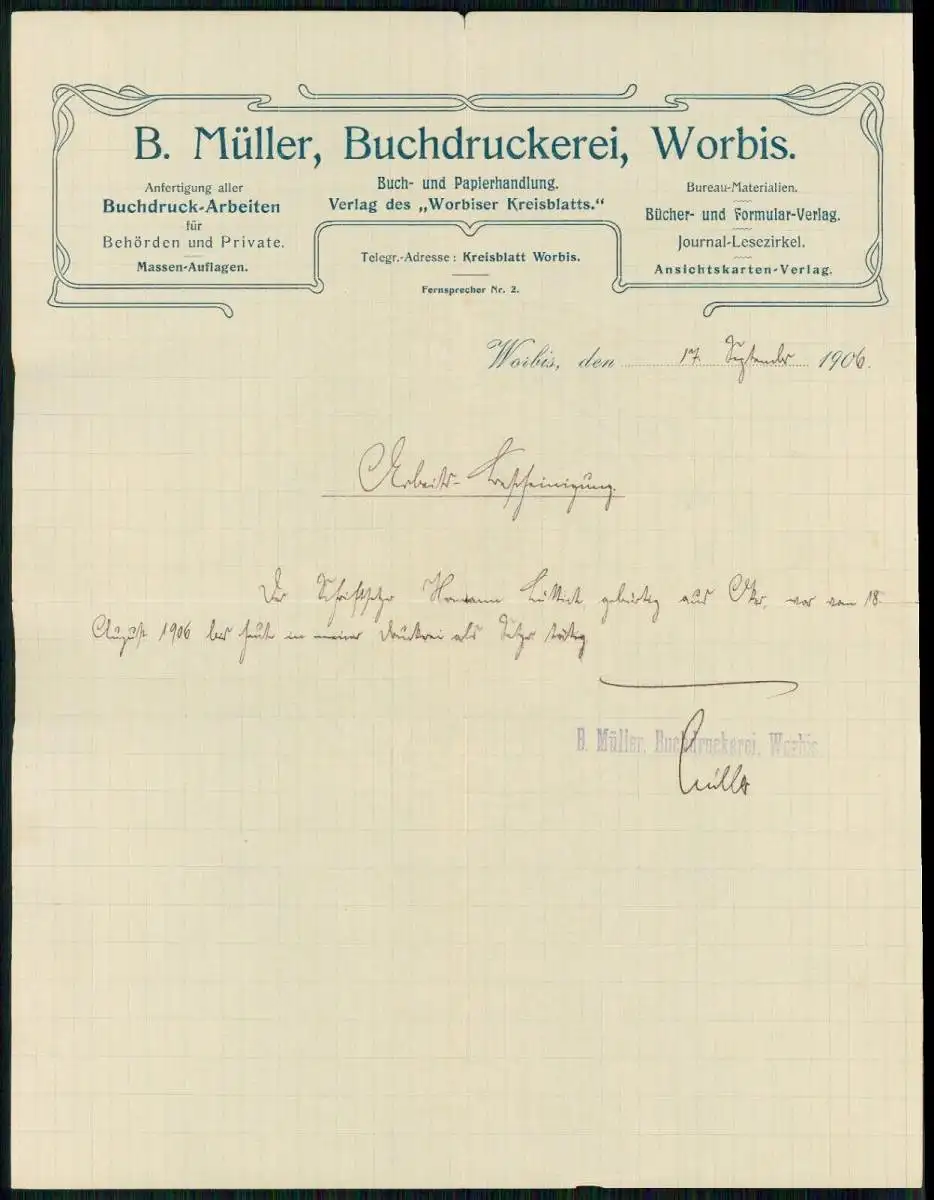 B. Müller, Buchdruckerei, Worbis.
Anfertigung aller
Buchdruck-Arbeiten
für
Behörden und Private.
Massen-Auflagen.
Buch- und Papierhandlung.
Verlag des „Worbiser Kreisblatts."
Telegr.-Adresse: Kreisblatt Worbis.
Fernsprecher Nr. 2.
Bureau-Materialien.
Bücher- und Formular-Verlag.
Journal-Lesezirkel.
Ansichtskarten-Verlag.
Worbis, den 17. September 1906.
Arbeits-Bescheinigung.
Der Schriftsetzer Hermann gebürtig aus Oker, war vom 18.
August 1906 bis heute in meiner Druckerei als Setzer tätig
B. Müller, Buchdruckerei, Worbis
Müller